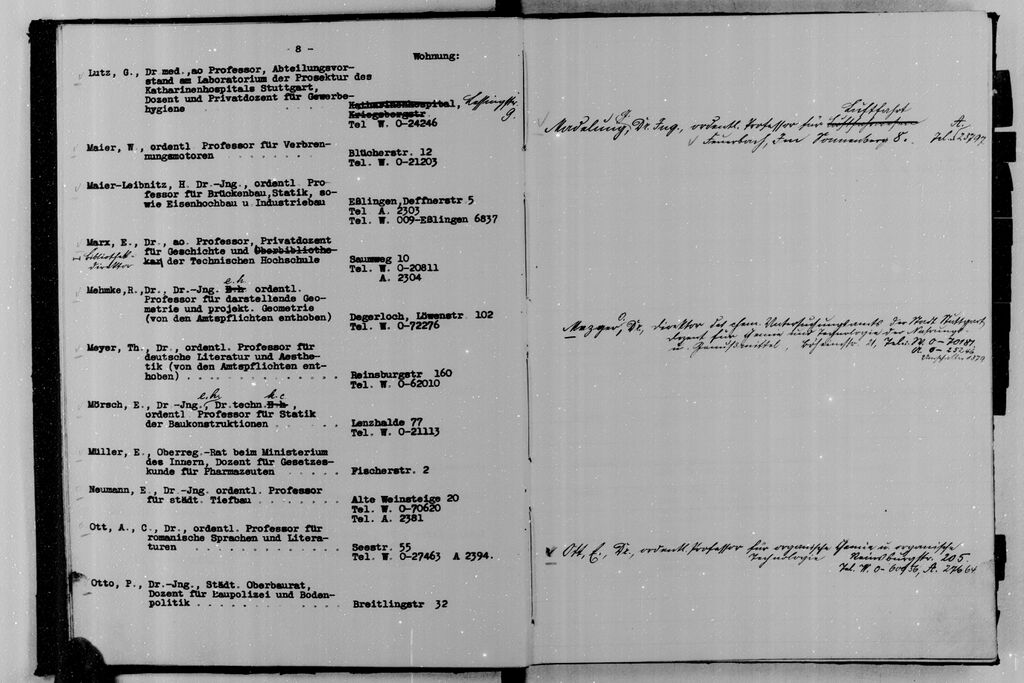 - 8 -
Wohnung:
Lutz, G., Dr med., ao Professor, Abteilungsvor-
stand am Laboratorium der Prosektur des
Katharinenhospitals Stuttgart,
Dozent und Privatdozent für Gewerbe-
hygiene . . . . . . . . . Katharinenhospital, Lessingstr. 9.
Kriegsbergstr.
Tel W. 0-24246
Maier, W., ordentl Professor für Verbren-
nungsmotoren . . . . . . . Blücherstr. 12
Tel. W. 0-21203
Maier-Leibnitz, H. Dr.-Jng., ordentl Pro-
fessor für Brückenbau, Statik, so-
wie Eisenhochbau u Industriebau Eßlingen, Deffnerstr 5
Tel A. 2303
Tel. W. 009-Eßlingen 6837
Marx, E., Dr., ao. Professor, Privatdozent
für Geschichte und Oberbibliothe-
Bibliothek-
direktor kar der Technischen Hochschule Saumweg 10
Tel. W. 0-20811
A. 2304
e.h.
Mehmke, R., Dr., Dr.-Jng. E.h ordentl.
Professor für darstellende Geo-
metrie und projekt. Geometrie
(von den Amtspflichten enthoben) Degerloch, Löwenstr. 102
Tel. W. 0-72276
Meyer, Th., Dr., ordentl. Professor für
deutsche Literatur und Aesthe-
tik (von den Amtspflichten ent-
hoben) . . . . . . . . . . Reinsburgstr 160
Tel. W. 0-62010
e.h. h.c
Mörsch, E., Dr -Jng., Dr.techn. E.h ,
ordentl Professor für Statik
der Baukonstruktionen . . . . . Lenzhalde 77
Tel. W. 0-21113
Müller, E., Oberreg.-Rat beim Ministerium
des Innern, Dozent für Gesetzes-
kunde für Pharmazeuten . . . . . Fischerstr. 2
Neumann, E., Dr -Jng. ordentl. Professor
für städt. Tiefbau . . . . . . . Alte Weinsteige 20
Tel. W. 0-70620
Tel. A. 2381
Ott, A., C., Dr., ordentl. Professor für
romanische Sprachen und Litera-
turen . . . . . . . . . . . Seestr. 55
Tel. W. 0-27463 A 2394.
Otto, P., Dr.-Jng., Städt. Oberbaurat,
Dozent für Baupolizei und Boden-
politik . . . . . . . . . . Breitlingstr 32
Luftfahrt
Madelung, G. Dr. Ing., ordentl. Professor für A.
Feuerbach, Am Sonnenberg 8. Tel.
Mezger, O. Dr., Direktor des chem. Untersuchungsamts der Stadt Stuttgart,
Dozent für Chemie und Technologie der Nahrungs-
u. Genußmittel, 21, Tel. W. 0-70181
A. 0-25246
Ott, E., Dr., ordentl. Professor für organische Chemie u. organische
Technologie Reinsburgstr. 205
Tel. W. 0-60936, A. 27664